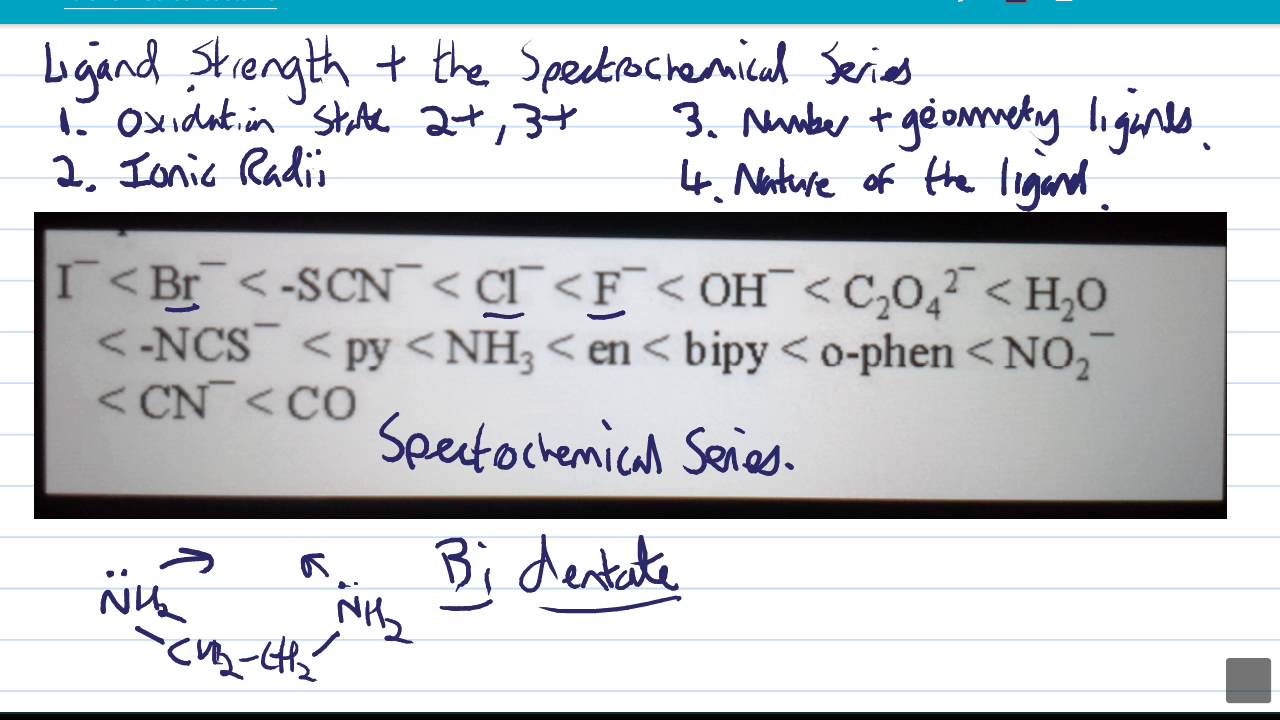 Ligand Strength + the Spectrochemical Series
1. Oxidation state 2+, 3+
2. Ionic Radii
3. Number + geometry ligands.
4. Nature of the ligand.
I⁻ < Br⁻ < -SCN⁻ < Cl⁻ < F⁻ < OH⁻ < C₂O₄²⁻ < H₂O
< -NCS⁻ < py < NH₃ < en < bipy < o-phen < NO₂⁻
< CN⁻ < CO
Spectochemical Series.
Bi dentate
N̈H₂ N̈H₂
CH₂-CH₂